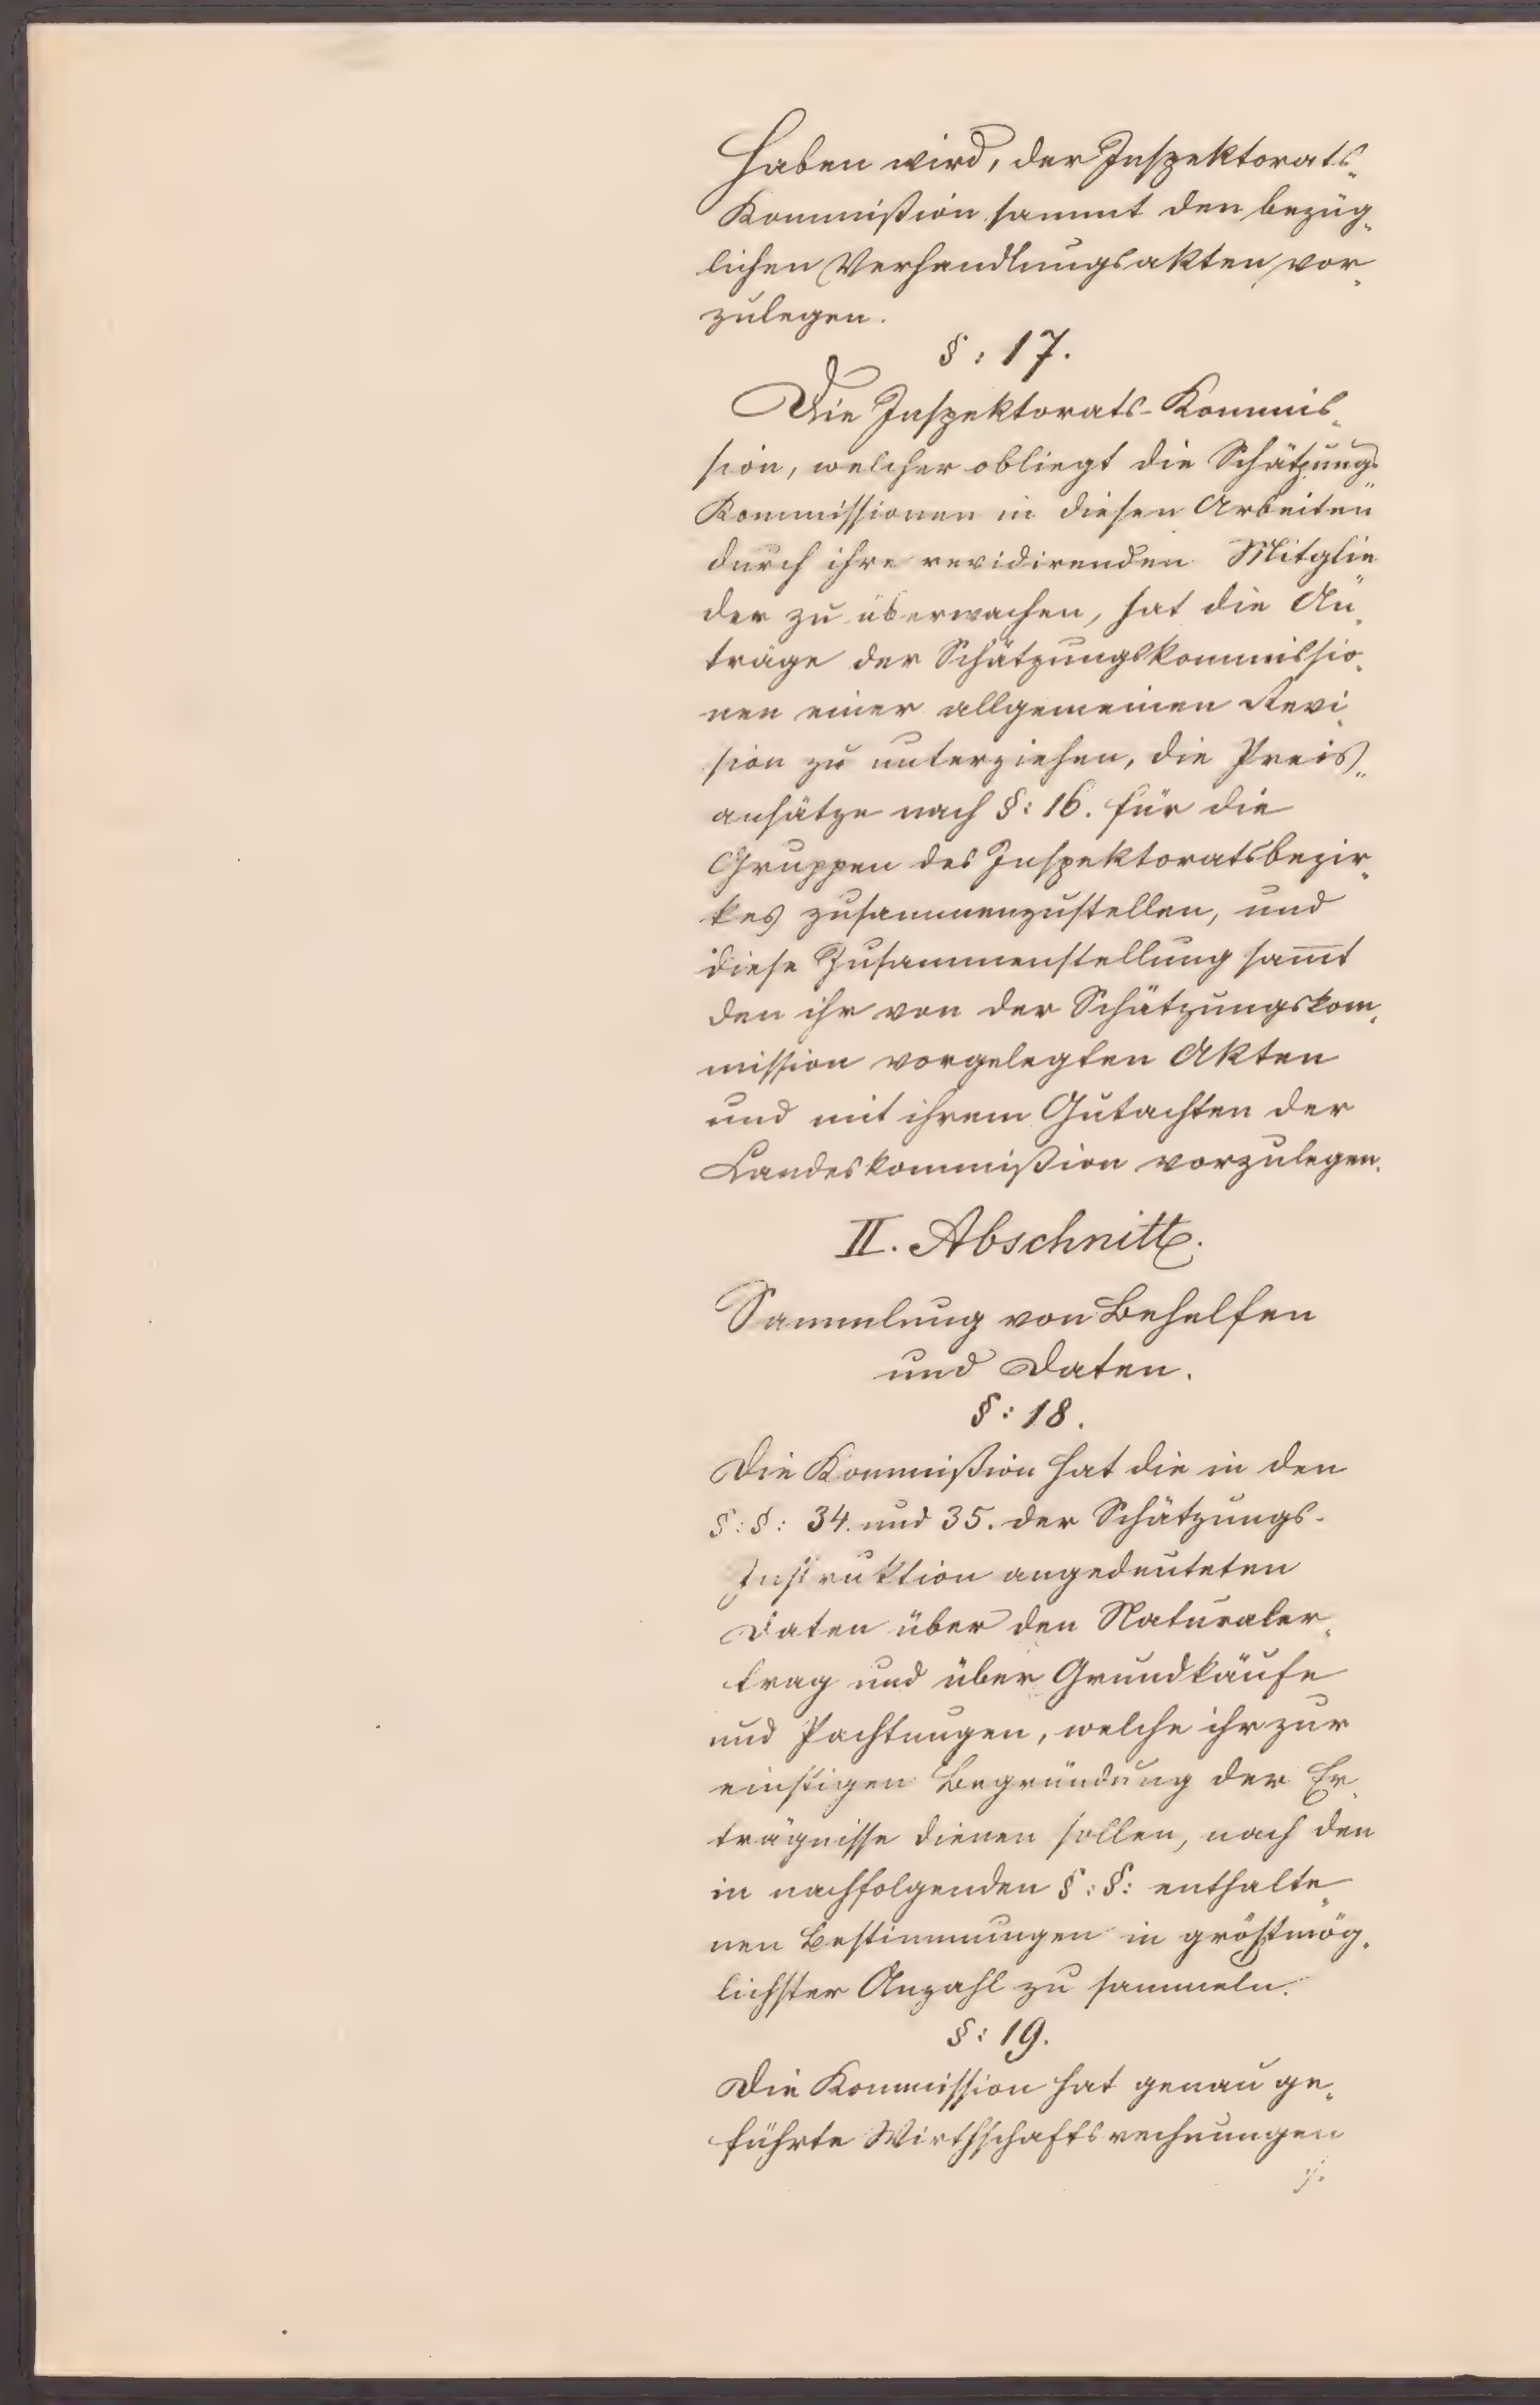 haben wird, der Inspektorats-
Kommißion sammt den bezüg-
lichen Verhandlungsakten vor-
zulegen.
§: 17.
Die Inspektorats-Kommis-
sion, welcher obliegt die Schätzungs-
Kommissionen in diesen Arbeiten
durch ihre revidirenden Mitglie
der zu überwachen, hat die An-
träge der Schätzungskommissio-
nen einer allgemeinen Revi-
sion zu unterziehen, die Preis-
ansätze nach §: 16. für die
Gruppen des Inspektoratsbezir-
kes zusammenzustellen, und
diese Zusammenstellung sam̅t
den ihr von der Schätzungskom-
mission vorgelegten Akten
und mit ihrem Gutachten der
Landeskommißion vorzulegen.
II. Abschnitt.
Sammlung von Behelfen
und Daten.
§: 18.
Die Kommißion hat die in den
§:§: 34. und 35. der Schätzungs-
Instruktion angedeuteten
Daten über den Naturaler-
trag und über Grundkäufe
und Pachtungen, welche ihr zur
einstigen Begründung der Er-
trägnisse dienen sollen, nach den
in nachfolgenden §:§: enthalte-
nen Bestimmungen in größtmög-
lichster Anzahl zu sammeln.
§: 19.
Die Kommission hat genau ge-
führte Wirthschaftsrechnungen
./.